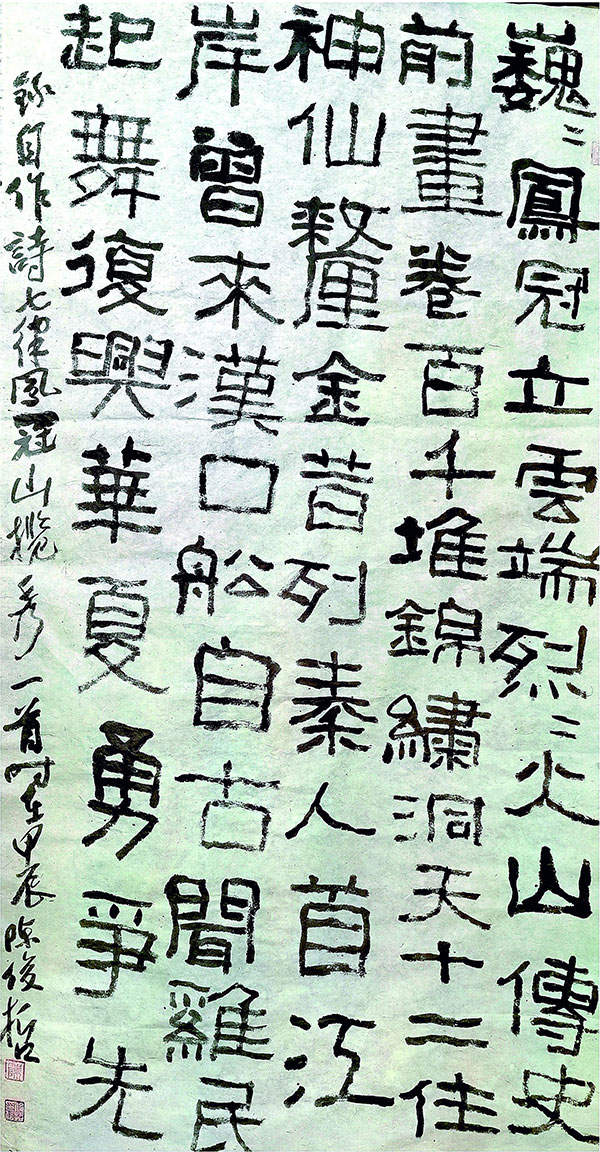 巍〻鳳冠立雲端烈〻火山傳史
前畫卷百千堆錦繡洞天十二住
神仙釐金昔列秦人首江
岸曾來漢口船自古聞雞民
起舞復興華夏勇爭先
錄自作詩七律鳳冠山攬秀一首时在甲辰陳俊哲